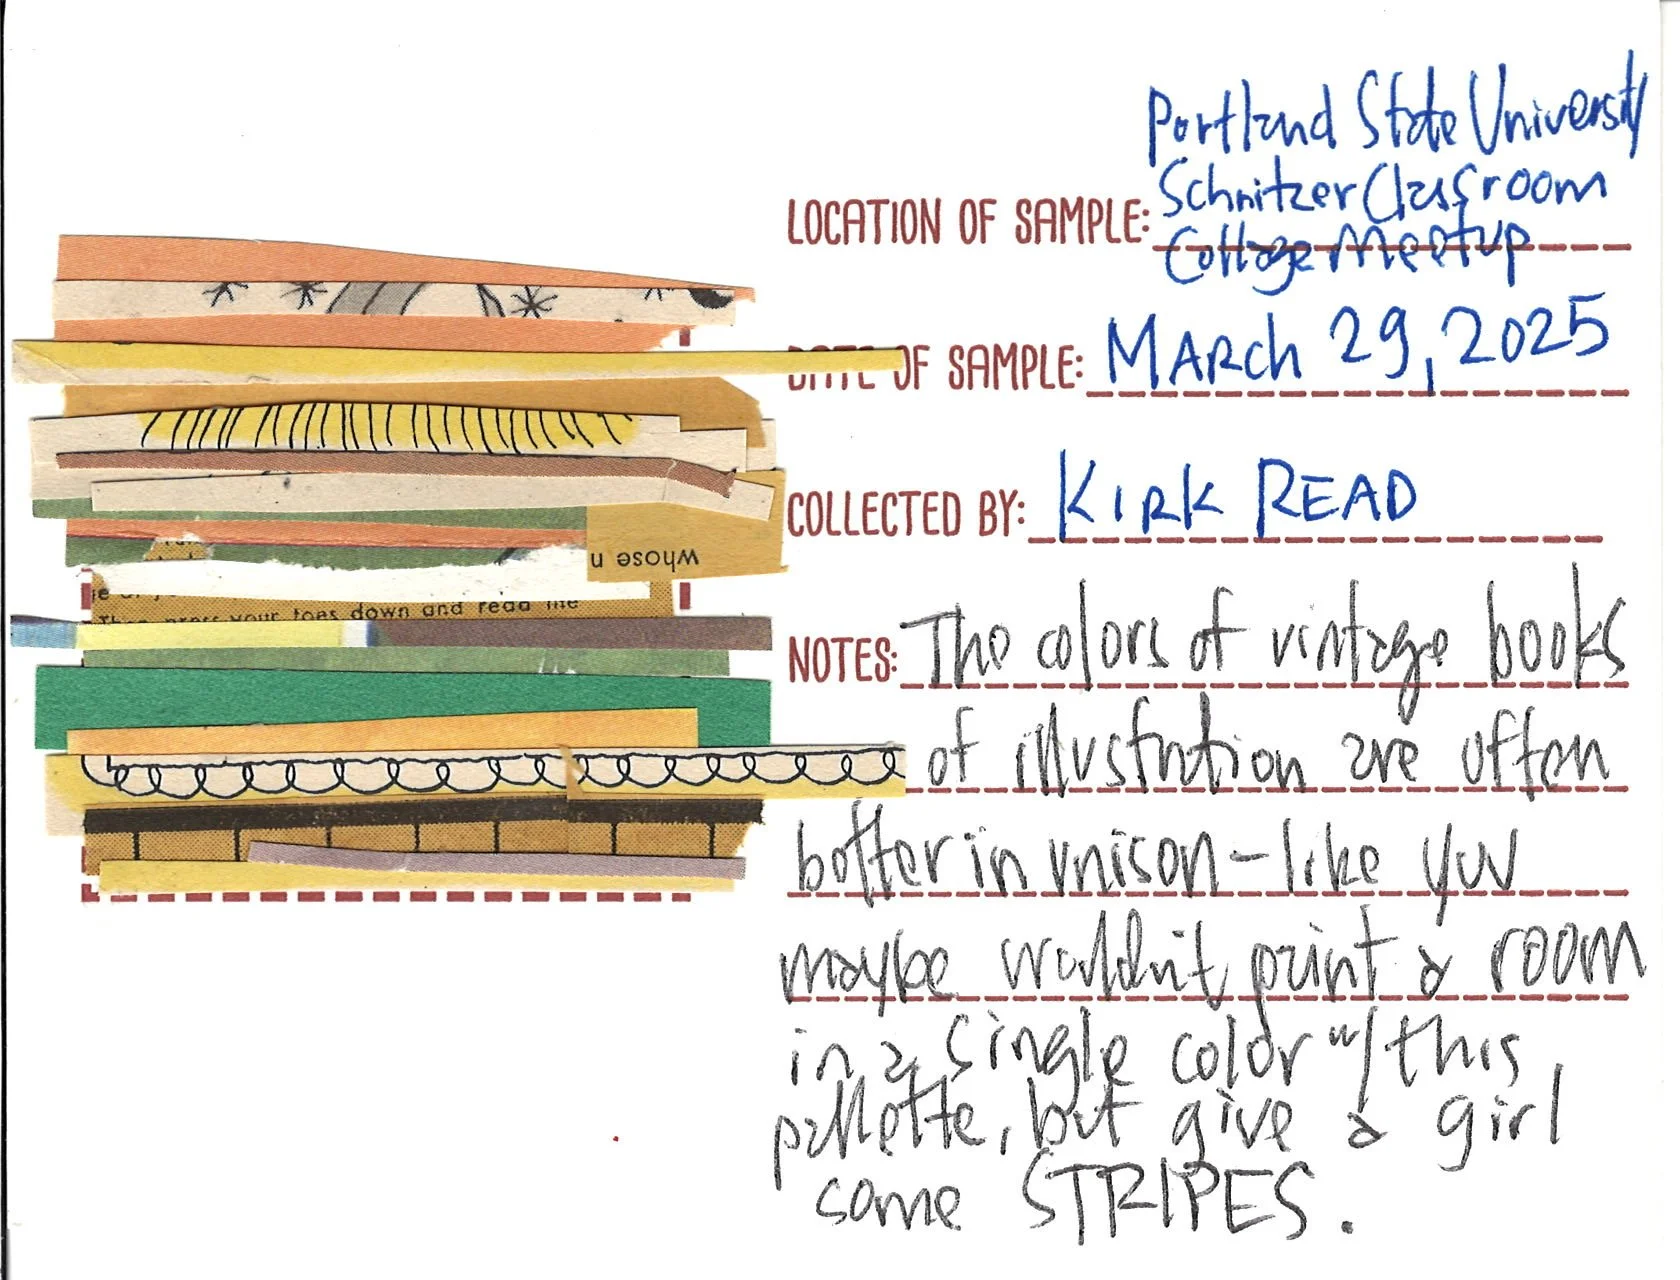 Portland State University
Schnitzer Classroom
LOCATION OF SAMPLE: Collage Meetup
DATE OF SAMPLE: MARch 29, 2025
COLLECTED BY: KIRK READ
whose n
press your toes down and read the
NOTES: The colors of vintage books
of illustration are often
better in unison - like you
maybe wouldn't paint a room
in a single color w/ this
pallette, but give a girl
some STRIPES.